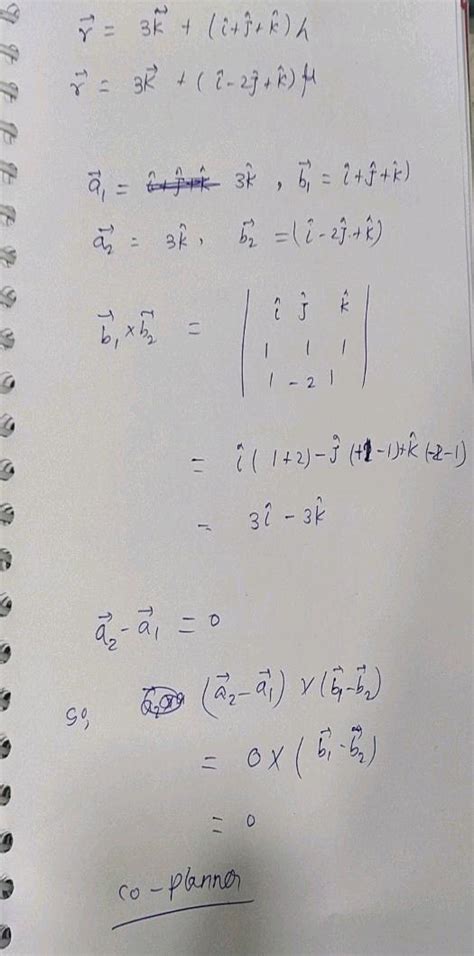 r⃗ = 3k⃗ + (î+ĵ+k̂) λ
r⃗ = 3k⃗ + (î-2ĵ+k̂) μ
a⃗₁ = 3k̂, b⃗₁ = î+ĵ+k̂)
a⃗₂ = 3k̂, b⃗₂ = (î-2ĵ+k̂)
b⃗₁×b⃗₂ = | î ĵ k̂ |
1 1 1
1 -2 1
= î(1+2)-ĵ(+1-1)+k̂(-2-1)
= 3î - 3k̂
a⃗₂-a⃗₁ = 0
so, (a⃗₂-a⃗₁) × (b⃗₁-b⃗₂)
= 0×(b⃗₁-b⃗₂)
= 0
co-planner